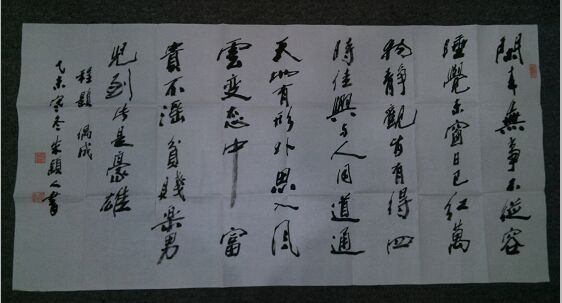 閑来無事不從容
睡覺东窗日已紅萬
物靜觀皆有得四
時佳興与人同道通
天地有形外思入風
雲变态中富
貴不淫貧賤楽男
児到此是豪雄
程顥偶成
乙未寒冬書